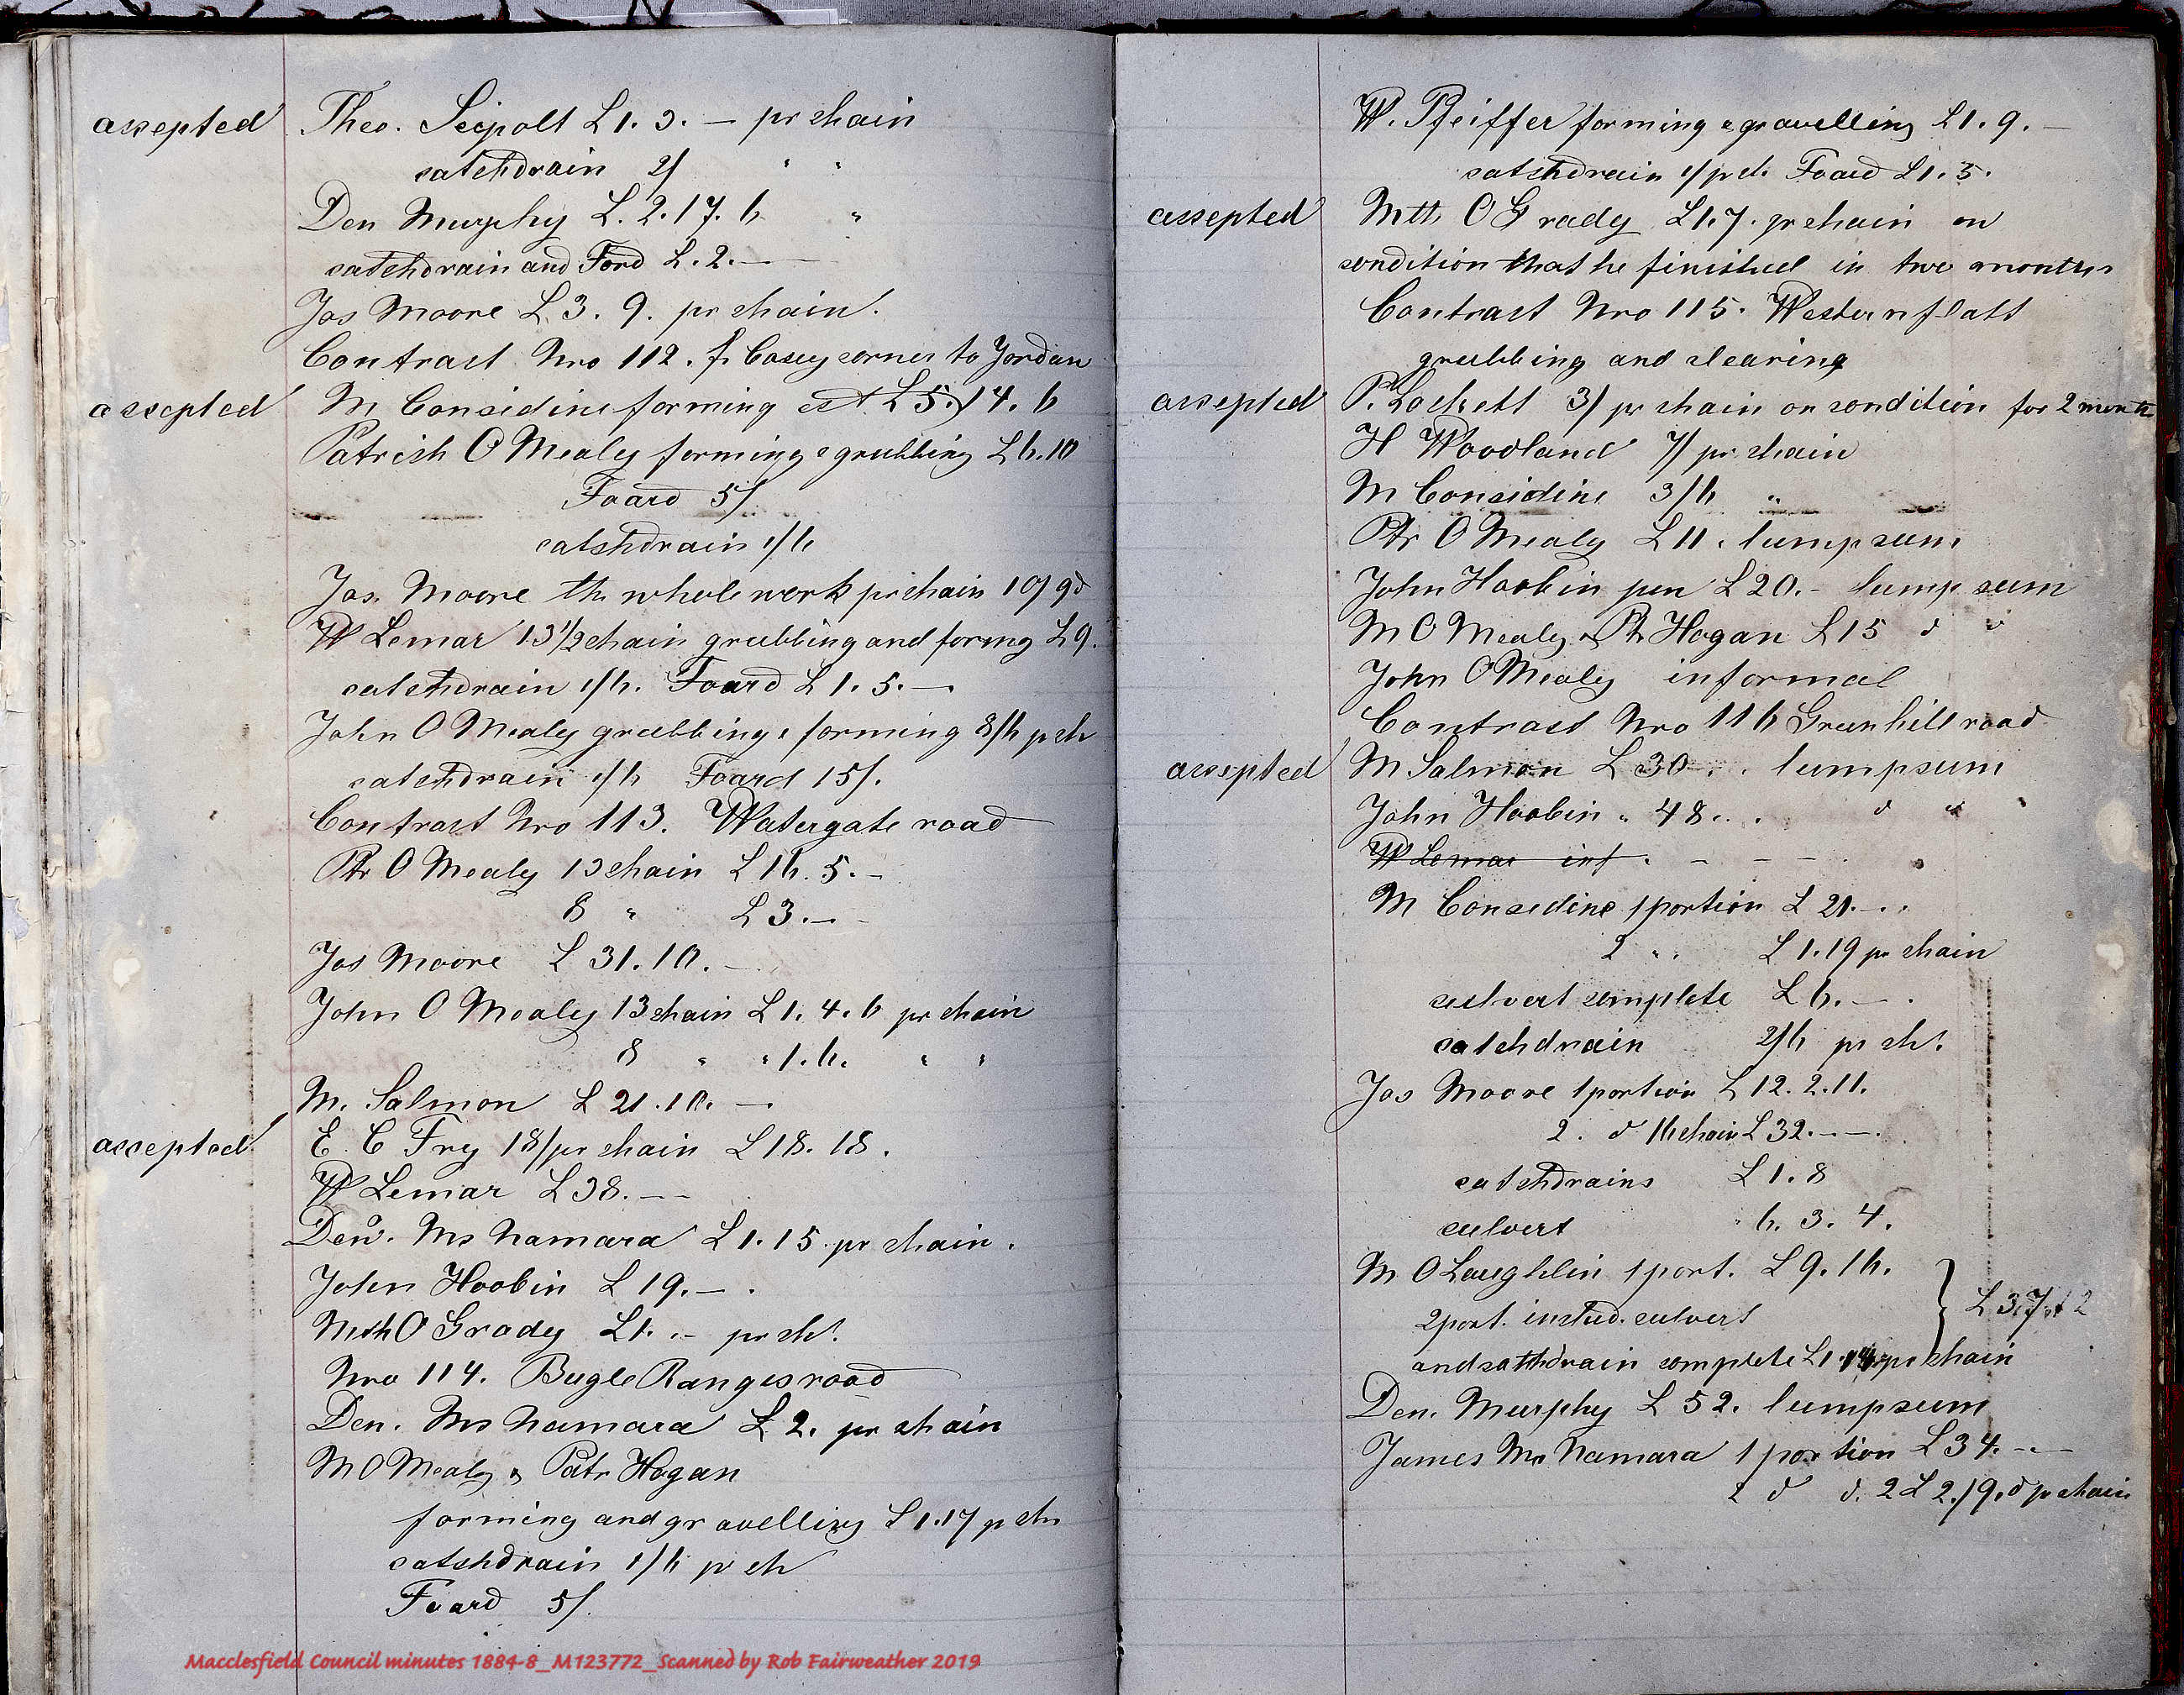 assepted Theo. Seipolt £1. 3. — pr chain
catchdrain 2/ " "
Den Murphy £. 2. 17. 6 "
catchdrain and Ford £. 2. —
Jas Moore £ 3. 9. pr chain.
Contract Nro 112. fr Casey corner to Jordan
assepted M Considine forming est £5. 14. 6
Patrich O Mealey forming & grubbing £6. 10
Foard 5/
catchdrain 1/6
Jas. Moore the whole work pr chain 10/9d
W Lemar 13 1/2 chain grubbing and formg £9.
catchdrain 1/6. Foard £1. 5. —.
John O Mealey grubbing & forming 8/6 p ch
catchdrain 1/6 Foard 15/.
Contract Nro 113. Watergate road
Ptr O Mealy 13 chain £16. 5. —
8 " £3. —
Jas Moore £ 31. 10. —
John O Mealey 13 chain £1. 4. 6 pr chain
8 " " 1. 6. " "
M. Salmon £ 21. 10. —.
assepted E. C Frey 18/ pr chain £18. 18.
W Lemar £38. — —
Den. Mc Namara £1. 15 pr chain.
John Hoobin £ 19. — .
Mth O Grady £1. .- pr ch.
Nro 114. Bugle Ranges road
Den. Mc Namara £ 2. pr chain
M O Mealy & Patr Hogan
forming and gravelling £1. 17 p ch
catchdrain 1/6 pr ch
Foard 5/.
W. Pfeiffer forming & gravelling £1. 9. —
catchdrain 1/ p ch. Foard £1. 5.
assepted Mtt O Grady £1. 7. pr chain on
condition that he finished in two months
Contract Nro 115. Western flatt
grubbing and clearing
assepted P. Lockett 3/ pr chain on condition for 2 month
H Woodland 7/ pr chain
M Considine 3/6 "
Ptr O Mealy £11. lumpsum
John Hoobin jun £20. - lump sum
M O Mealy & Ptr Hogan £15 d d
John O Mealey informal
Contract Nro 116 Greenhill road
assepted M Salmon £ 30 . . lumpsum
John Hoobin " 48 . . . d "
W Lemar inf. - - -
M Considine 1 portion £ 21. - .
2 " . £ 1. 19 pr chain
culvert complete £6. — .
catchdrain 2/6 pr ch.
Jas Moore 1 portion £ 12. 2. 11.
2. d 16 chain £ 32. — —.
catchdrains £ 1. 8
culvert " 6. 3. 4.
M O Laughlin 1 port. £9. 16.
2 port. includ. culvert
and catchdrain complete £1. pr chain
Den. Murphy £ 52. lumpsum
James Mc Namara 1 portion £ 34. - . —
2 d d. 2 £ 2. 19. d pr chain
Macclesfield Council minutes 1884-8_M123772_Scanned by Rob Fairweather 2019